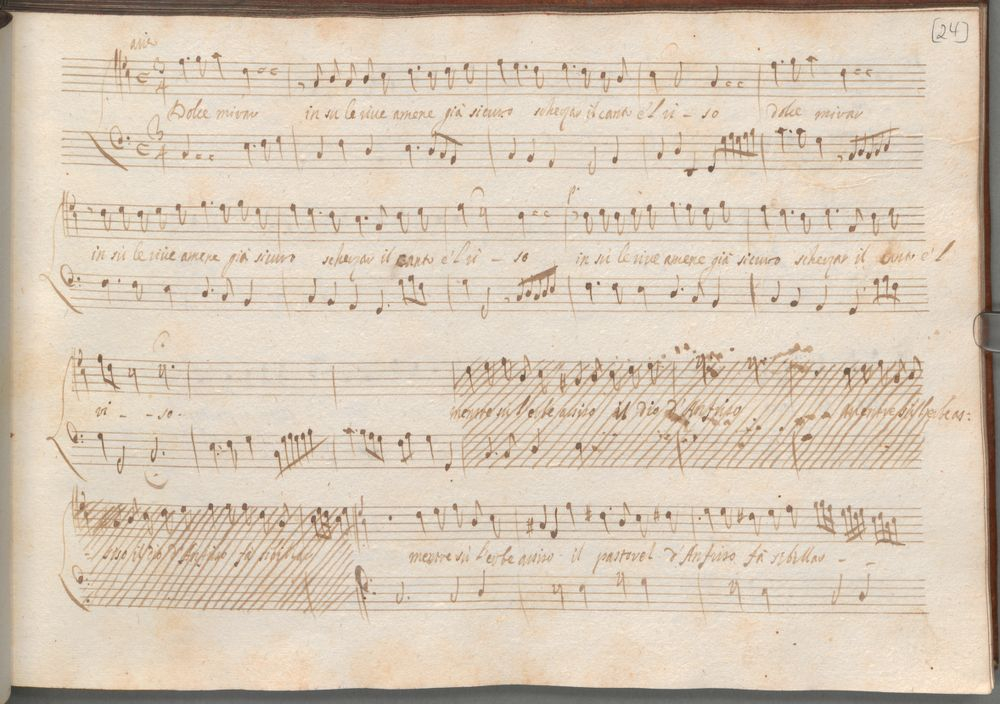 [24]
aria
Dolce mirar in sù le rive amene già sicuro scherzar il canto e'l ri - so dolce mirar
in sù le rive amene già sicuro scherzar il canto e'l ri - so in sù le rive amene già sicuro scherzar il canto e'l
ri - - so. mentre sù l'erbe assiso il Dio d'Anfriso mentre sù l'erbe as:
siso il Dio d'Anfriso fà sibillar mentre sù l'erbe assiso il pastorel d'Anfriso fà sibillar - -